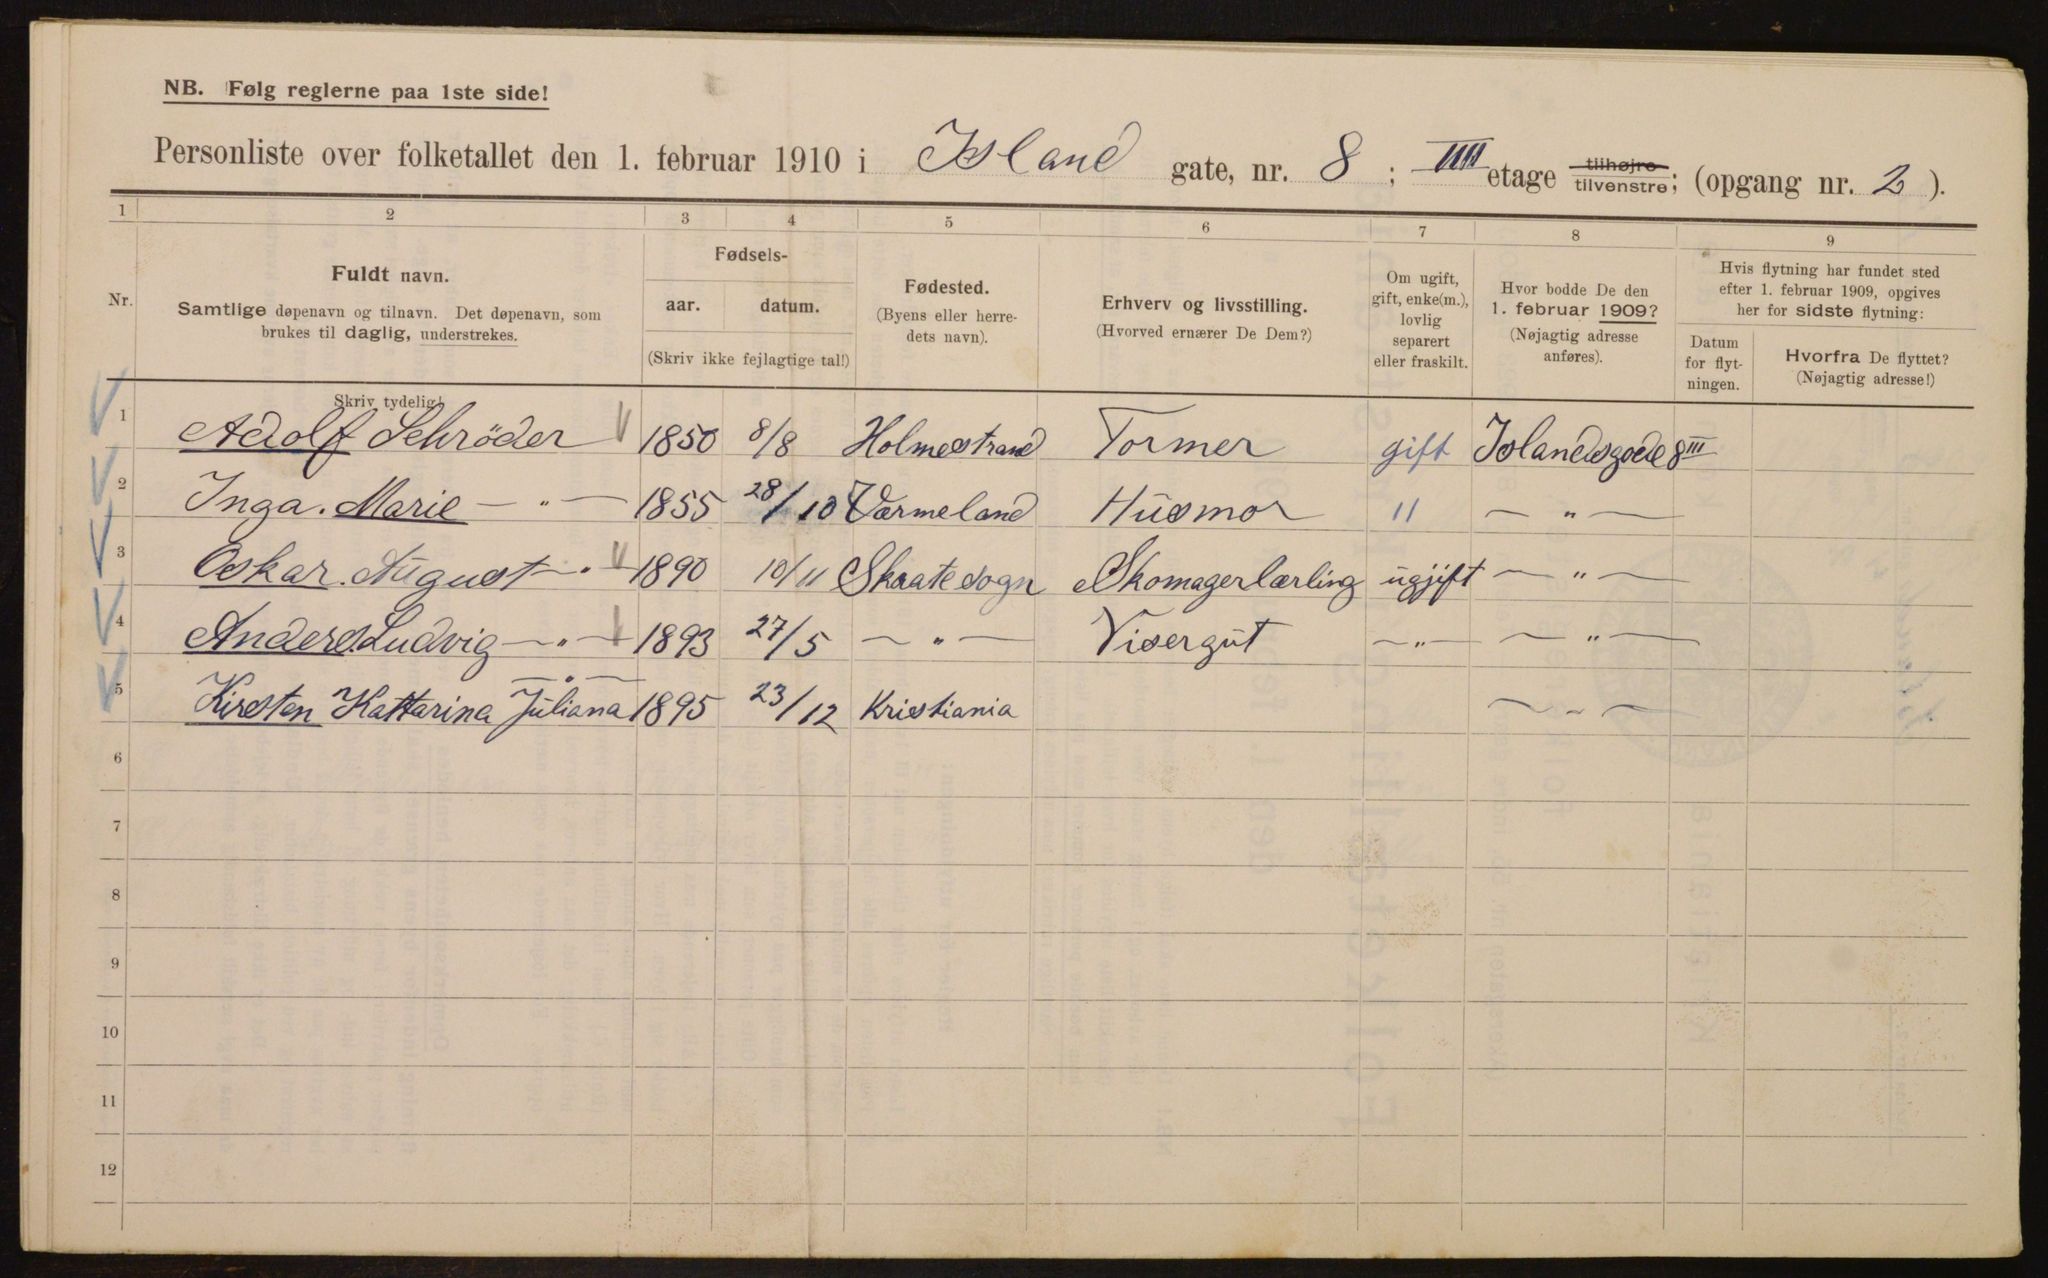 NB. Følg reglerne paa 1ste side!
Personliste over folketallet den 1. februar 1910 i Island gate, nr. 8 ; IIII etage tilhøjre tilvenstre; (opgang nr. 2 ).
1 2 3 4 5 6 7 8 9
Nr.
Fuldt navn.
Samtlige døpenavn og tilnavn. Det døpenavn, som
brukes til daglig, understrekes.
Skriv tydelig!
Fødsels-
aar. datum.
(Skriv ikke fejlagtige tal!)
Fødested.
(Byens eller herre-
dets navn).
Erhverv og livsstilling.
(Hvorved ernærer De Dem?)
Om ugift,
gift, enke(m.),
lovlig
separert
eller fraskilt.
Hvor bodde De den
1. februar 1909?
(Nøjagtig adresse
anføres).
Hvis flytning har fundet sted
efter 1. februar 1909, opgives
her for sidste flytning:
Datum
for flyt-
ningen.
Hvorfra De flyttet?
(Nøjagtig adresse!)
1 Adolf Schrøder 1850 8/8 Holmestrand Tormer gift Islandsgade 8 III
2 Inga. Marie — " — 1855 28/10 Værmeland Husmor " — " —
3 Oskar. August — " — 1890 10/11 Skaatesogn Skomagerlærling ugjift — " —
4 Anders. Ludvig — " — 1893 27/5 — " — Visergut — " — — " —
5 Kirsten Kattarina Juliana — " — 1895 23/12 Kristiania — " —
6
7
8
9
10
11
12